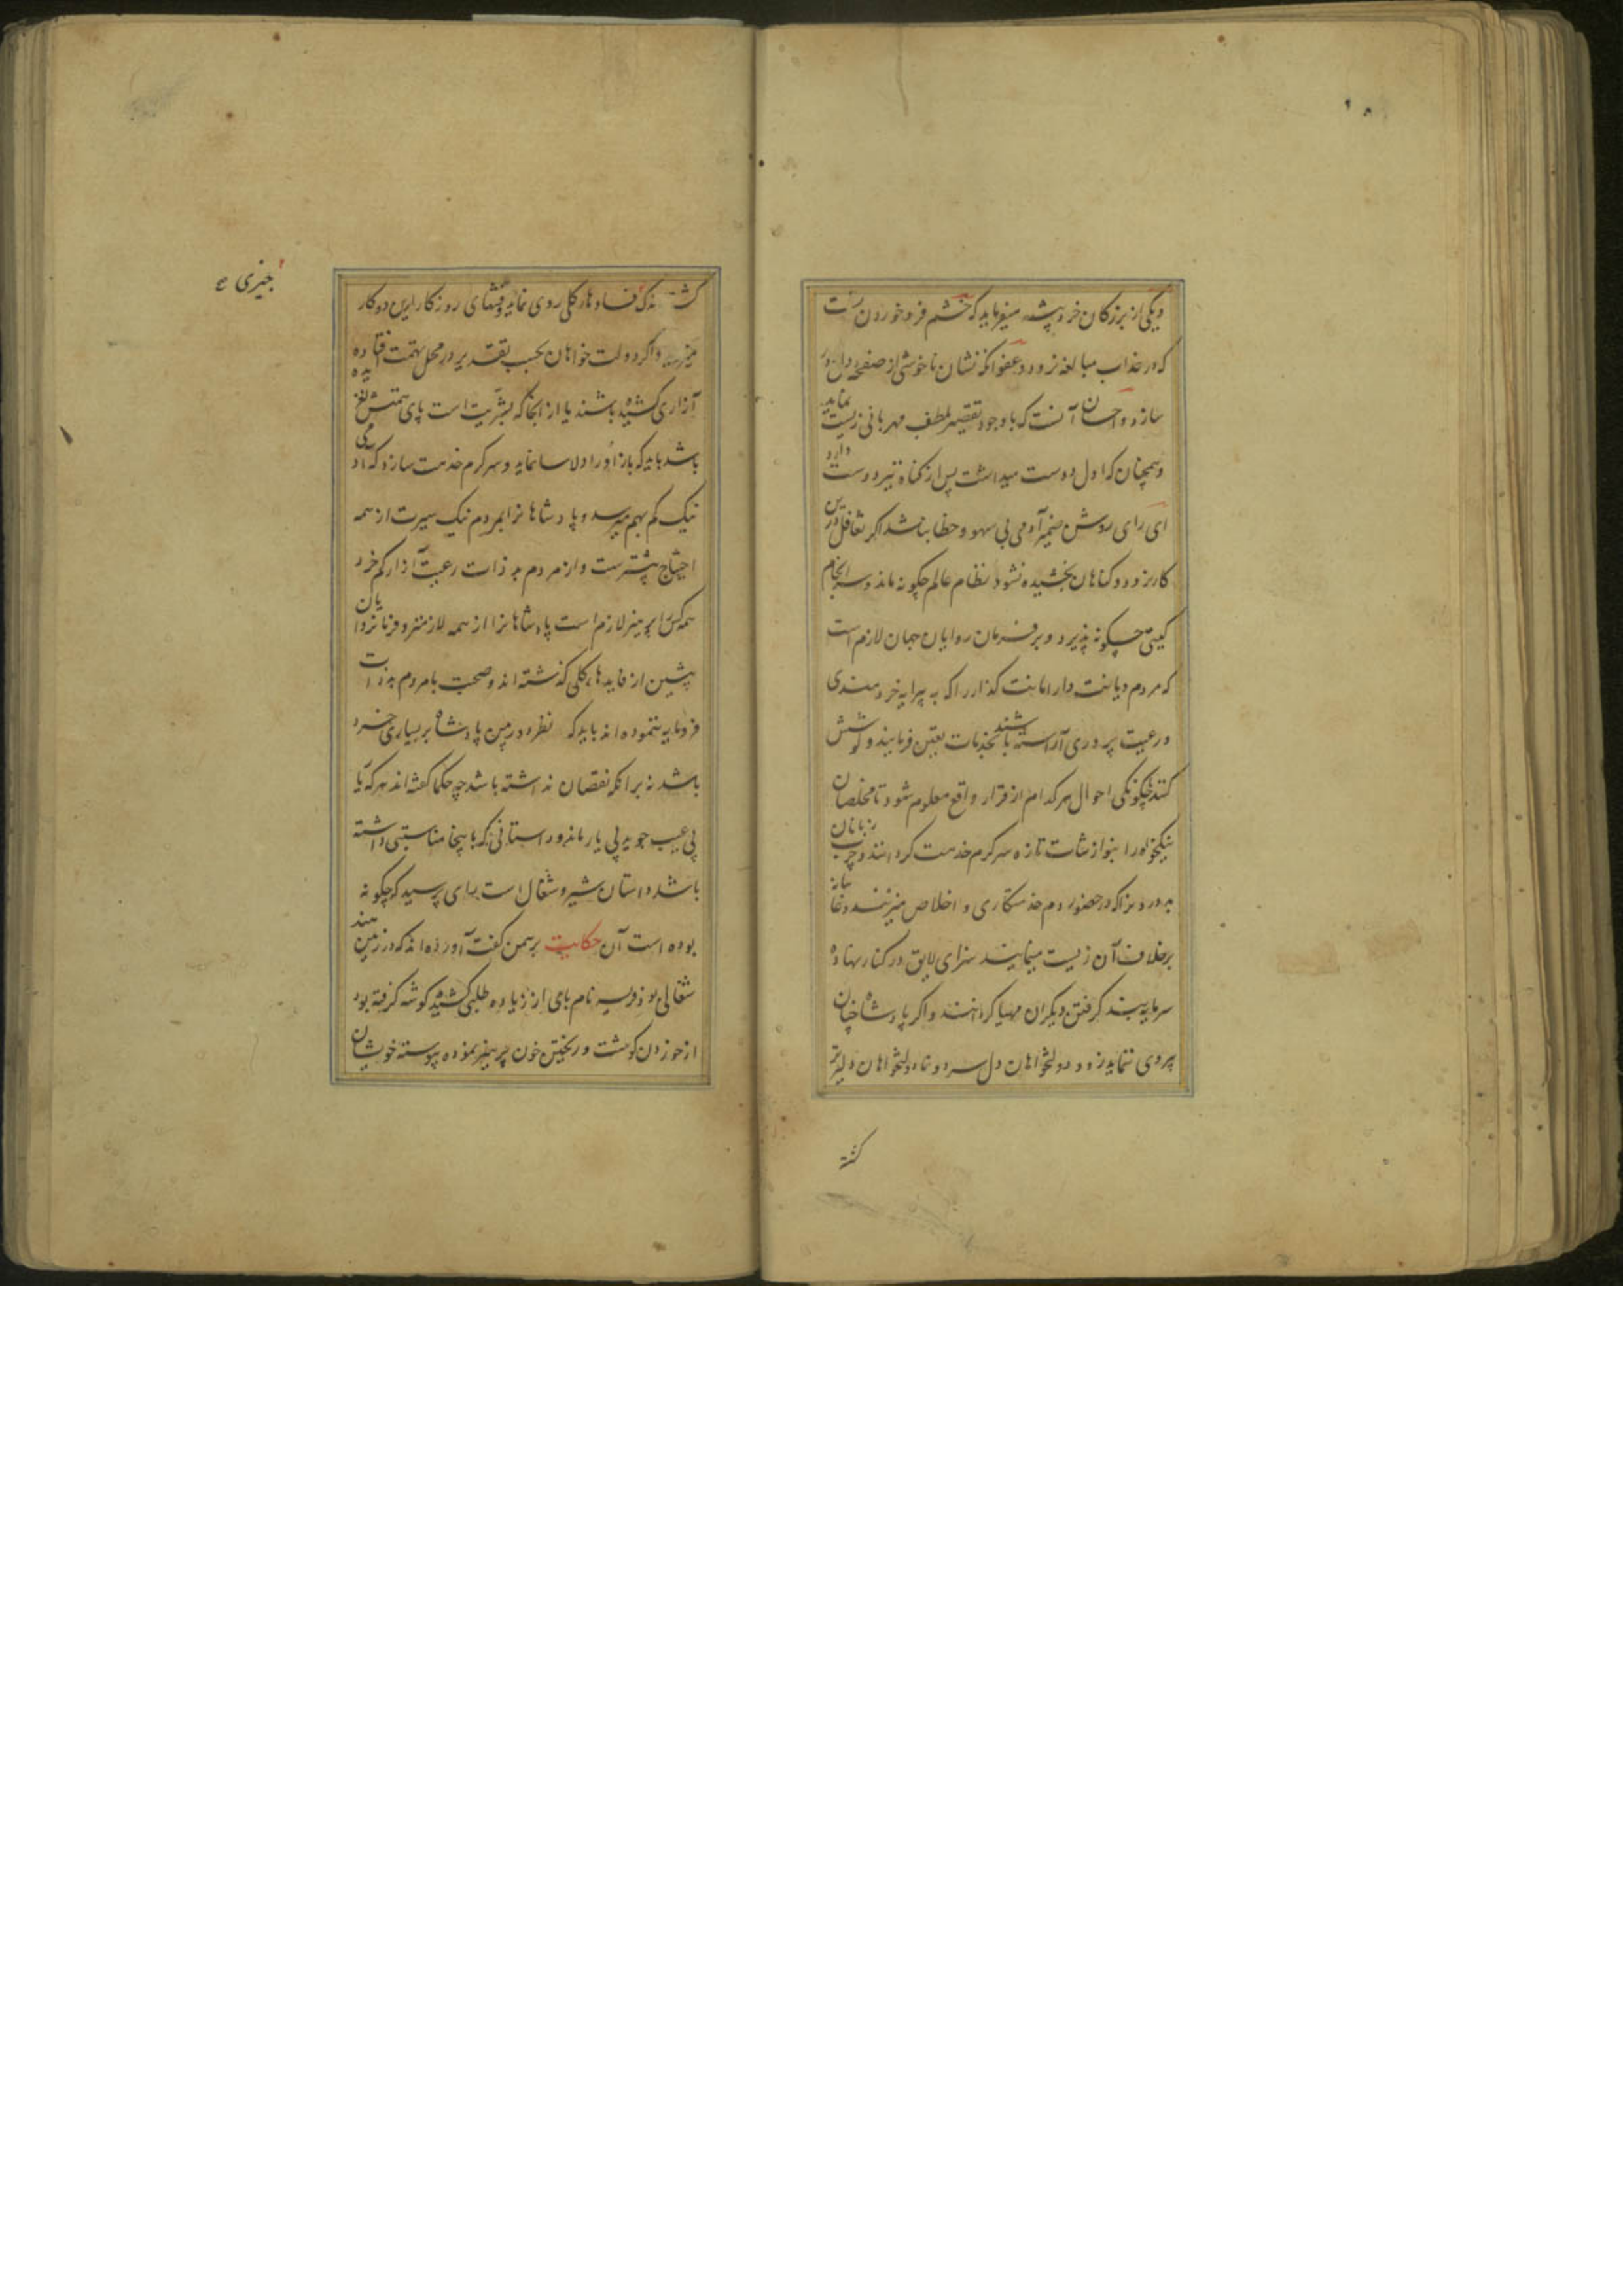 ویکی از بزرکان خرد پیشه میفرماید که خشم فرو خوردن
که در عذاب مبالغه نرود و عفو انکه نشان ناخوشی از صفحه دل
سازد و احسان آنست که با وجود تقصیر بلطف مهربانی زیست نماید
و همچنان که اول دوست میداشت پس از کناه نیز دوست دارد
ای رای روشن ضمیر آدمی بی سهو و خطا نباشد اکر تغافل درین
کار نرود و کناهان بخشیده نشود نظام عالم چکونه ماند و سر انجام
کیتی چکونه پذیرد و بر فرمان روایان جهان لازم است
که مردم دیانت دار امانت کذار را که به پیرایه خردمندی
و رعیت پروری آراسته باشند بخدمات تعین فرمایند و کوشش
کنند چکونکی احوال هر کدام از قرار واقع معلوم شود تا مخلصان
نیکخو را بنوازشات تازه سرکرم خدمت کردانند و چرب زبانان
بد درون را که در حضور دم خدمتکاری و اخلاص میزنند و غایبانه
بر خلاف آن زیست مینمایند سزای لایق در کنار نهاده
سرمایه پند کرفتن دیکران مهیا کردانند و اکر پادشاه چنان
پیروی ننماید زود دولتخواهان دل سرد و نادولتخواهان دلیرتر
کشته
کشته که فسادهای کلی روی نماید و فتنهای روزکار ازین دو کار
میخیزد و اکر دولت خواهان بحسب تقدیر در محل تهمت افتاده
آزاری کشیده باشند یا از انجا که بشریت است پای همتش لغزیده
باشد باید که باز او را دلاسا نماید و سرکرم خدمت سازد که آدمی
نیک کم بهم میرسد و پادشاهانرا بمردم نیک سیرت از همه
احتیاج بیشترست و از مردم بد ذات رعیت آزار کم خرد
همه کس را پرهیز لازم است پادشاهانرا از همه لازمتر و فرمانروایان
پیشین از فایدهای کلی کذشته اند و صحبت با مردم بد ذات
فرومایه ننموده اند باید که نظر دوربین پادشاه بر بسیاری خرد
باشد نه بر آنکه نقصان نداشته باشد چه حکما کفته اند هر که یار
بی عیب جوید بی یار ماند و داستانی که باینجا مناسبتی داشته
باشد داستان شیر و شغال است رای پرسید که چکونه
بوده است آن حکایت برهمن کفت آورده اند که در زمین هند
شغالی بود فریسه نام پای از زیاده طلبی کشیده کوشه کرفته بود
از خوردن کوشت و ریختن خون پرهیز نموده پیوسته خویشان
چیزی